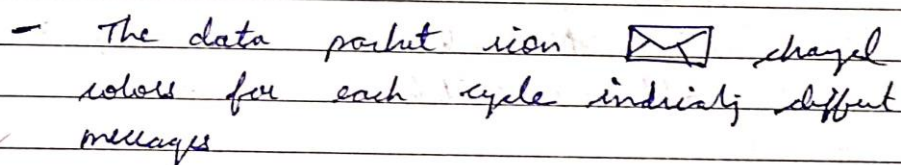 - The data packet icon changed
colors for each cycle indicating different
messages